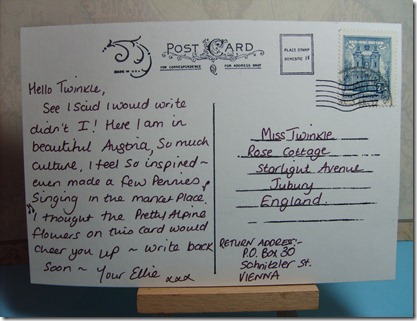 POST CARD
MADE IN U.S.A.
FOR CORRESPONDENCE
FOR ADDRESS ONLY
PLACE STAMP
DOMESTIC 1¢
Hello Twinkle,
See I Said I would write
didn't I! Here I am in
beautiful Austria, So much
culture, I feel So inspired ~
even made a few Pennies,
Singing in the market Place.
I thought the Pretty Alpine
flowers on this card would
cheer you up ~ write back
Soon ~ Your Ellie xxx
Miss Twinkle
Rose Cottage
Starlight Avenue
Jubury
England.
RETURN ADDRES:-
P.O. Box 30
Schnitzler St.
VIENNA